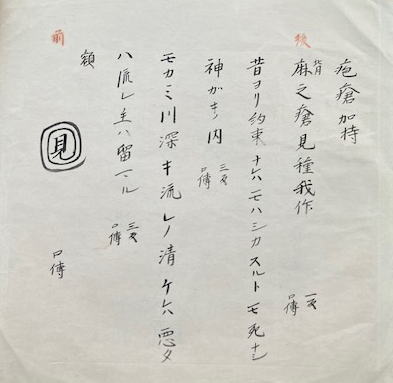 疱瘡加持
後
背
麻之瘡見種我作
一反
口傳
昔ヨリ約束ナ六モハシカスルトモ死ナシ
神ガキノ内
三反
口傳
モカミ川深キ流レノ清ケ六悪タ
ハ流レ主ハ留マル
三反
口傳
前
額
見
口傳